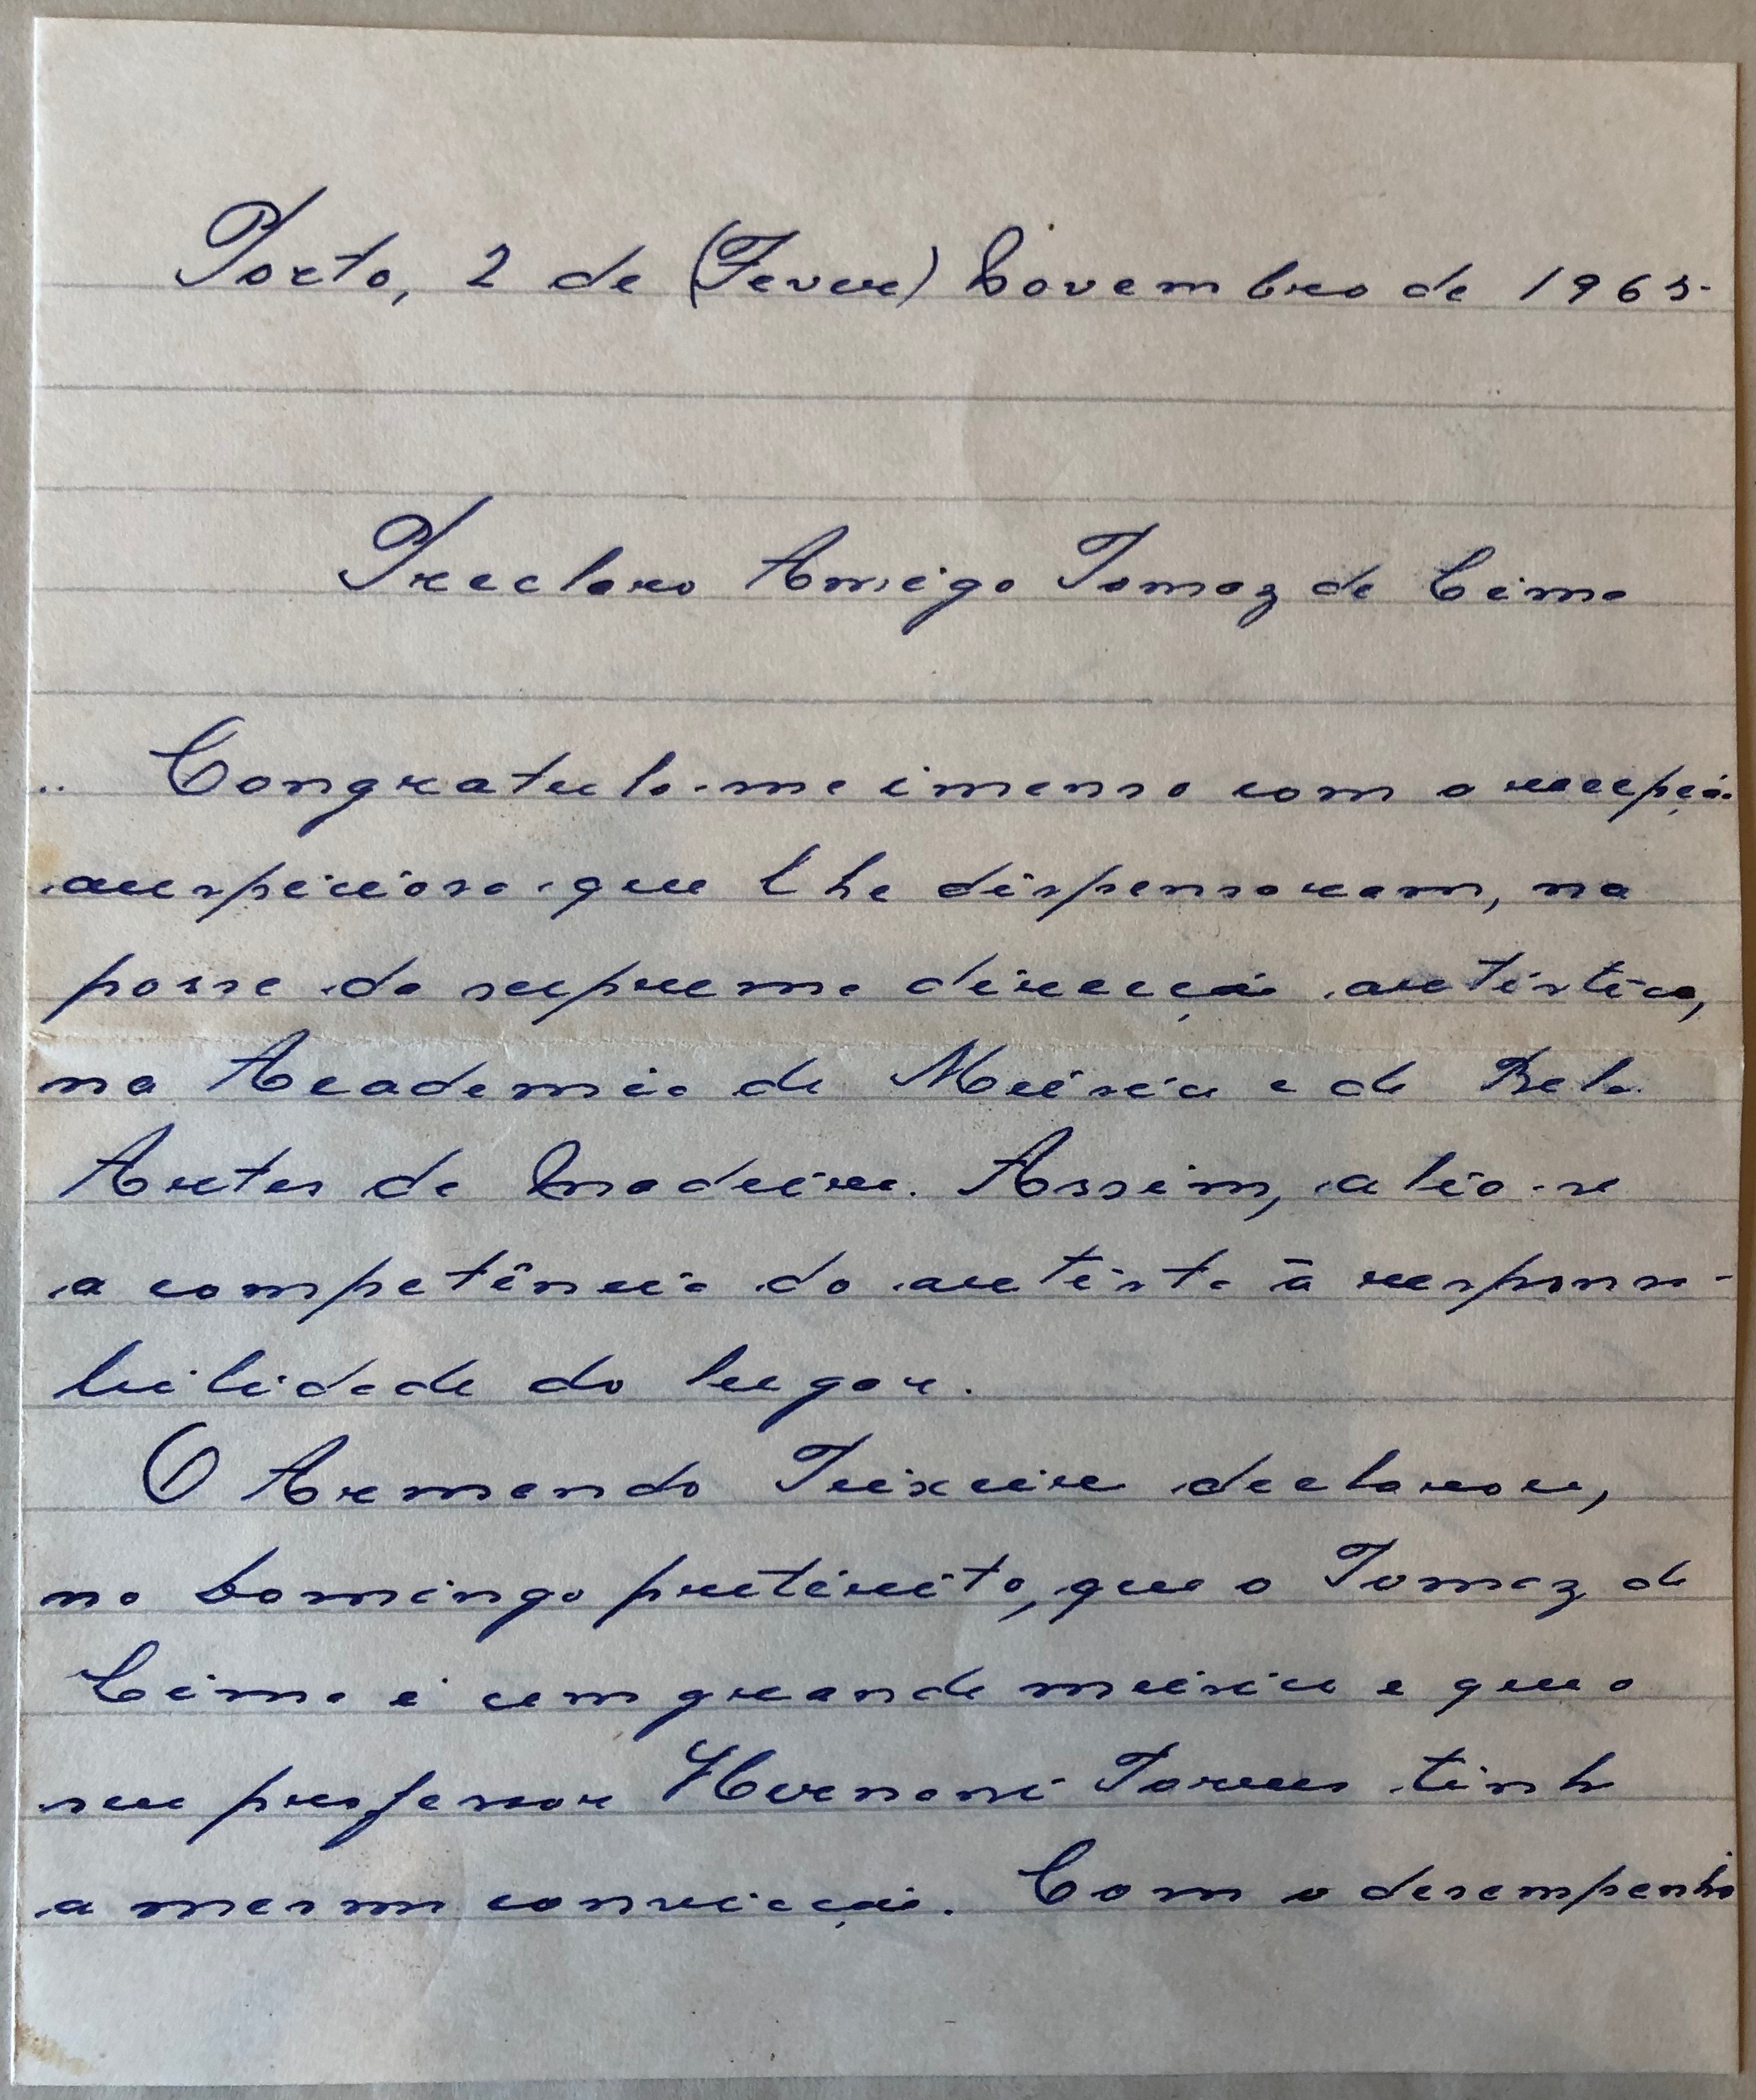 Porto, 2 de (Fever) Novembro de 1965.
Preclaro Amigo Tomaz de Lima
Congratulo-me imenso com a recepção
auspiciosa que lhe dispensaram, na
posse da suprema direcção artística,
na Academia de Música e de Belas
Artes da Madeira. Assim, alia-se
a competência do artista à responsa-
bilidade do lugar.
O Armando Teixeira declarou,
no Domingo pretérito, que o Tomaz de
Lima é um grande músico e que o
seu professor Hernani Torres tinha
a mesma convicção. Com o desempenho